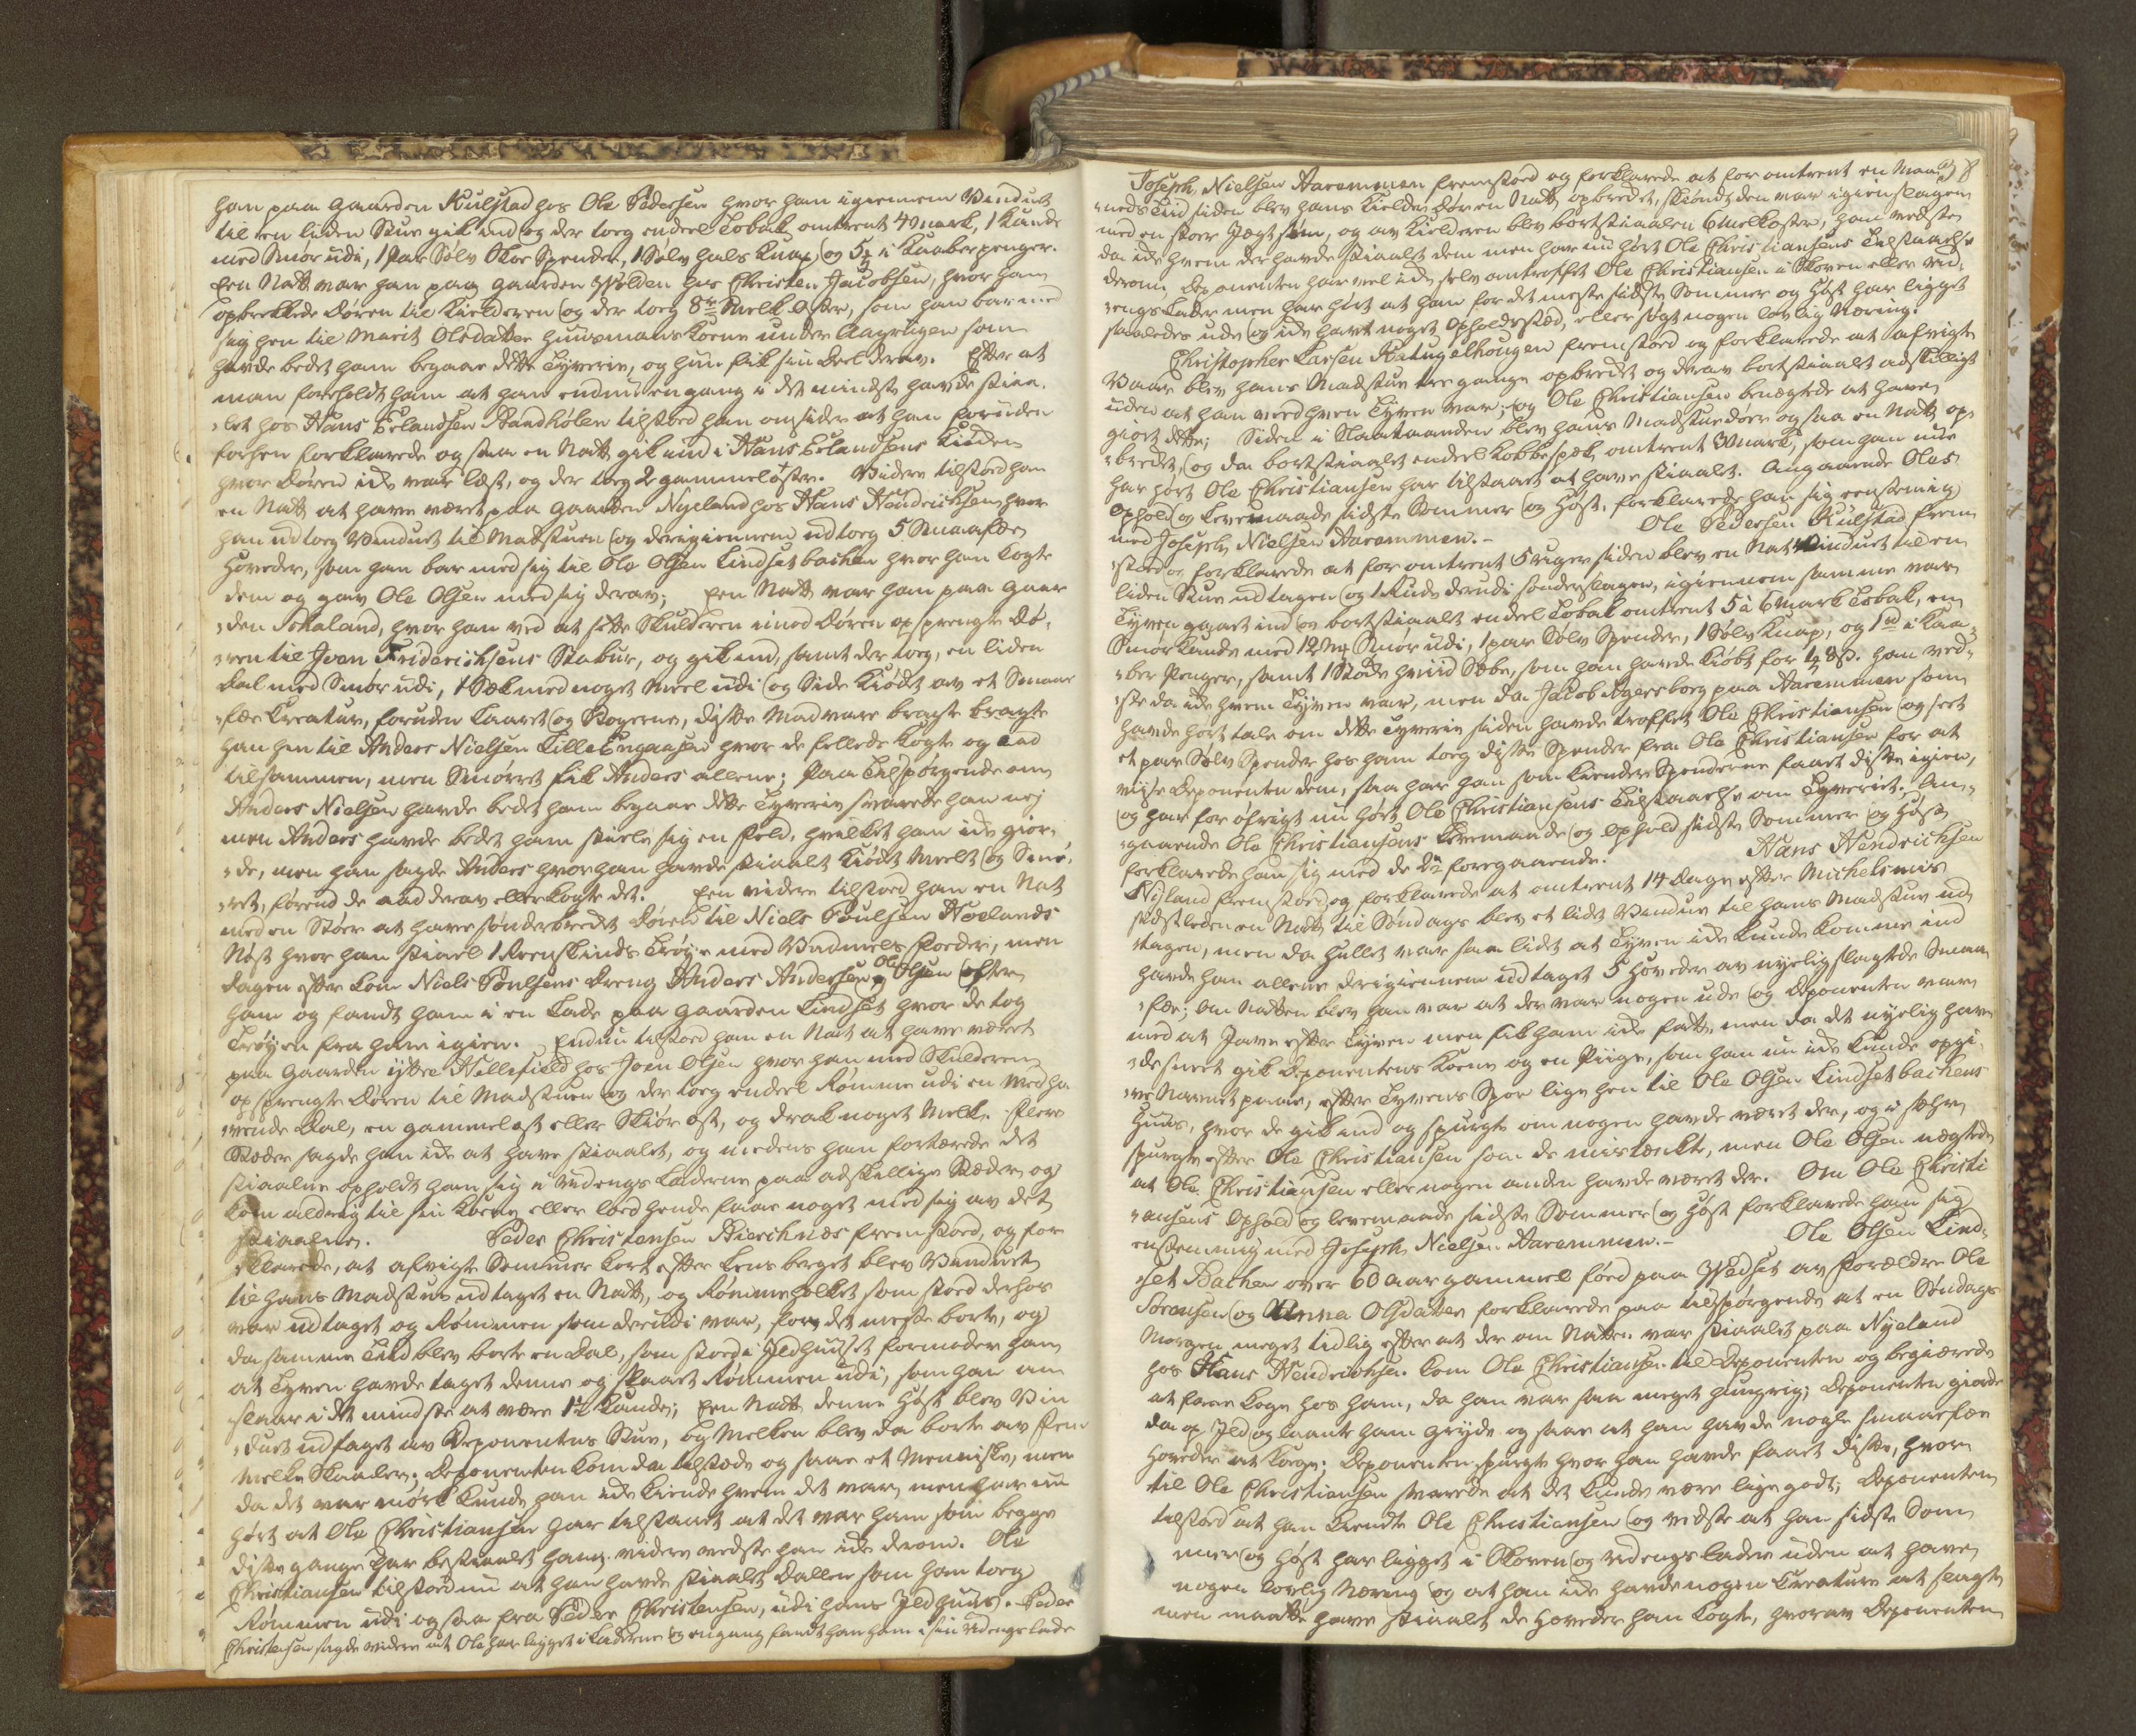 han paa Gaarden Kulstad hos Ole Pedersen hvor han igiennem Vinduet
til en liden Stue gik ind og der toeg endeel Tobak omtrent 4 Mark, 1 Kande
med Smør udi, 1 Par Sølv Skoe Spender, 1 Sølv hals Knap og 5 i Kaaberpenger.
Een Natt var han paa Gaarden hos Christen Jacobsen, hvor han
opbrekkede Døren til Kielderen og der toeg 8te Melk Øster, som han bar med
sig hen til Marit Olsdatter Huusmands Kone under Aagrligen som
havde bedet ham begaae dette Tyverie, og hun fik sin Deel derav. Efter at
man foreholdt ham at han endnu engang i det mindste havde stiaa-
let hos Hans Erlandsen Bandhølen tilstoed han omsider at han foruden
forhen forklarede ogsaa en Natt gik ind i Hans Erlandsens Kielder
hvor Døren ikke var læst, og der toeg 2 gammeløster. Videre tilstoed han
en Natt at have været paa Gaarden Nyeland hos Hans Hendrichsen hvor
han udtoeg Vinduet til Matstuen og derigiennem udtoeg 5 Smaafæe
Hoveder, som han bar med sig til Ole Olsen Lindsetbachen hvor han kogte
dem og gav Ole Olsen med sig derav; Een Natt var han paa Gaar-
den Johaland, hvor han ved at sætte Skulderen imod Døren opsprengte Dø-
ren til Joen Friderichsens Stabur, og gik ind, samt der toeg, en liden
Dal med Smør udi, 1 Sæk med noget Meel udi og Side Kiødt av et Smaae
fæe Creatur, foruden Laaret og Bogerne, disse Madvare bragte bragte
han hen til Anders Nielsen Lille Engaasen hvor de felleds kogte og aad
tilsammen, men Smørret fik Anders allene; Paa Tilspørgende om
Anders Nielsen havde bedet ham begaae dette Tyverie svarede han nej
men Anders havde bedet ham stiele sig en Feld, hvilket han ikke gior-
de, men han sagde Anders hvor han havde stiaalet Kiødt Meelet og Smø-
ret, førend de aad derav eller kogte det. Een videre tilstoed han en Nat
med en Støer at have sønderbrekket Døren til Niels Poulsen Hoelands
Nøst hvor han stial 1 Reenskinds Trøye med Vadmels Foeder, men
Dagen efter kom Niels Poulsens Dreng Anders Andersen og Ole Olsen efter
ham og fandt ham i en Lade paa Gaarden Lindset hvor de tog
Trøyen fra ham igien. Endnu tilstoed han en Natt at have været
paa Gaarden ytter Hellefield hos Joen Olsen hvor han med Skulderen
opsprengte Døren til Madstuen og der toeg endeel Rømme udi en Medha-
vende Dal, en gammelost eller Skiør ost, og drak noget Melk. Flere
Stæder sagde han ikke at have stiaalet, og medens han fortærede det
stiaalne opholdt han sig i Udengs Laderne paa adskillige Stæder og
kom aldrig til sin Kone eller loed hende faae noget med sig av det
stiaalne. Peder Christensen Bierchnæs fremstoed, og for-
klarede, at afvigte Sommer kort efter Lens berget blev Vinduet
til hans Madstue udtaget en Natt, og Rømmehollet som stoed derhos
var udtaget og Rømmen som derudi var, for det meste borte, og
da samme Tiid blev borte en Dal, som stoed i Jldhuuset formoder han
at Tyven havde taget denne og slaaet Rømmen udi, som han an-
slaar i det mindste at være 1½ Kande; Een Natt denne Høst blev Vin-
duet udtaget av Deponentens Stue, og Melken blev da borte av Fem
Melke Skaaler; Deponenten kom da tilstæde og saae et Menniske, men
da det var mørk kunde han ikke kiende hvem det var, men har nu
hørt at Ole Christiansen har tilstaaet at det var ham som begge
disse gange har bestiaalet ham, videre vedste han ikke derom. Ole
Christiansen tilstoed nu at han havde stiaalet Dallen som han toeg
Rømmen udi ogsaa fra Peder Christensen, udi hans Jldhuus. Peder
Christensen sagde videre at Ole har ligget i Laderne og engang fandt han ham i sin Udengs lade
38
Joseph Nielsen Aaremmen fremstoed og forklarede at for omtrent en Maa-
neds Tiid siden blev hans Kielder dør en Natt opbrekket, skiøndt den var igienslagen
med en stoer Jagt Søm, og av Kielderen blev bortstiaalen 6 Melkoster, han vedste
da ikke hvem der havde stiaalet dem men har nu hørt Ole Christiansens Tilstaaelse
derom, Deponenten har vel ikke selv antroffet Ole Christiansen i Skoven eller Ud-
engs Lader men har hørt at han for det meste sidste Sommer og Høst har ligget
saaledes ude og ikke havt noget Opholdsstæd, eller søgt nogen lovlig Næring.
Christopher Larsen Katugelhougen fremstoed og forklarede at afvigte
Vaar blev hans Madstue tre gange opbrekket og derav bortstiaalet adskilligt
uden at han veed hvem Tyven var; og Ole Christiansen benægtede at have
giort dette; Siden i Slaataanden blev hans Madstuedør ogsaa en Natt op-
brekket, og da bortstiaalet endeel Kobbespek, omtrent 3 Mark, som han nu
har hørt Ole Christiansen har tilstaaet at have stiaalet. Angaaende Oles
Ophold og Levemaade sidste Sommer og Høst, forklarede han sig eenstemmig
med Joseph Nielsen Aaremmen. - Ole Pedersen Kulstad frem-
stoed og forklarede at for omtrent 5 uger siden blev en Nat Vinduet til en
liden Stue udtagen og 1 Rude derudi sønderslagen, igiennem samme var
Tyven gaaet ind og bortstiaalet endeel Tobak omtrent 5 à 6 Mark Tobak, en
Smør Kande med 12 Mk Smør udi, 1 par Sølv Spender, 1 Sølv Knap, og 1 i Kaa-
ber Penger, samt 1 Støkke hviid Sebe, som han havde kiøbt for ½ 8 s. han ved-
ste da ikke hvem Tyven var, men da Jacob Agersborg paa Aaremmen som
havde hørt tale om dette Tyverie siden havde troffet Ole Christiansen og seet
et par Sølv Spender hos ham toeg disse Spender fra Ole Christiansen for at
viise Deponenten dem, saa har han som kiendte Spenderne faaet disse igien,
og har for øvrigt nu hørt Ole Christiansens Tilstaaelse om Tyveriet. An-
gaaende Ole Christiansens Levemaade og Ophold sidste Sommer og Høst
forklarede han sig med de 2de foregaaende. Hans Hendrichsen
Nyland fremstoed og forklarede at omtrent 14 Dage efter Michelsmis
sidstleden en Natt til Søndags blev et lidet Vindue til hans Madstue ud-
tagen, men da Hullet var saa lidet at Tyven ikke kunde komme ind
havde han allene derigiennem udtaget 5 Hoveder av nyelig slagtede Smaa-
fæe; Om Natten blev han var at der var nogen ude og Deponenten var
med at Jage efter Tyven men fik ham ikke fatt, men da det nyelig hav-
de sneet gik Deponentens Kone og en Piige, som han nu ikke kunde opgi-
ve Navnet paa, efter Tyvens Spor lige hen til Ole Olsen Lindsetbachens
Huus, hvor de gik ind og spurgte om nogen havde været der, og i sær
spurgte efter Ole Christiansen som de mistænkte, men Ole Olsen nægtede
at Ole Christiansen eller nogen anden havde været der. Om Ole Christi-
ansens Ophold og levemaade sidste Sommer og Høst forklarede han sig
enstemmig med Joseph Nielsen Aaremmen. - Ole Olsen Lind-
set Bachen over 60 aar gammel föed paa Wedset av Forældre Ole
Sørensen og Anna Olsdatter forklarede paa tilspørgende at en Søndags
Morgen meget tidlig efter at der om Natten var stiaalet paa Nyeland
hos Hans Hendrichsen kom Ole Christiansen til Deponenten og begiærede
at faae koge hos ham, da han var saa meget hungrig; Deponenten giorde
da op Jld og laante ham gryde og saae at han havde nogle smaafæe
Hoveder at koege. Deponenten spurgte hvor han havde faaet disse, hvor-
til Ole Christiansen svarede at det kunde være lige godt; Deponenten
tilstoed at han kiendte Ole Christiansen og vidste at han sidste Som-
mer og Høst har ligget i Skoven og Udengslader uden at have
nogen lovlig Næring og at han ikke havde nogen Creature at slagte
men maatte have stiaalet de Hoveder han kogte, hvorav Deponenten